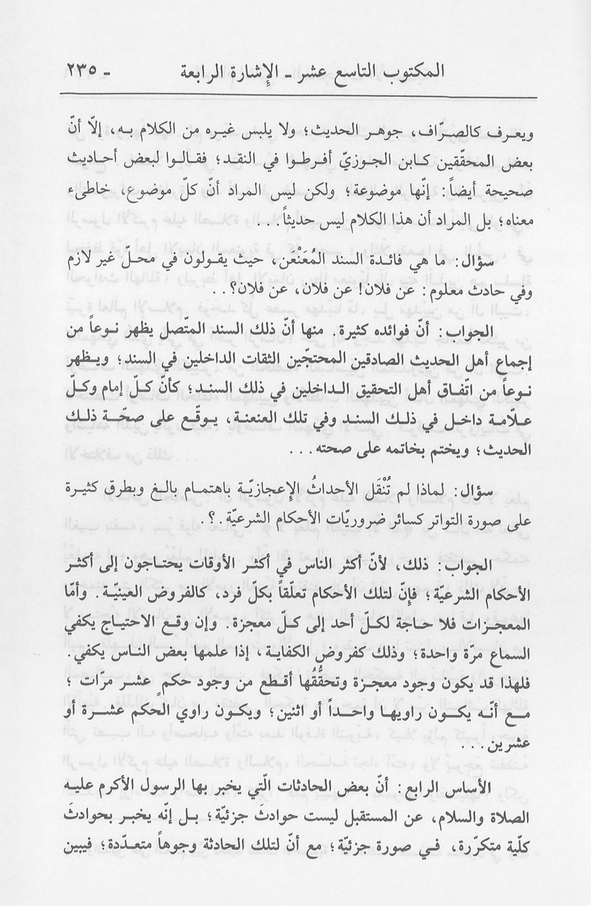 المكتوب التاسع عشر ـ الإشارة الرابعة ـ ٢٣٥
ويعرف كالصرّاف، جوهر الحديث؛ ولا يلبس غيره من الكلام به، إلّا أنّ
بعض المحقّقين كـابن الجوزيّ أفـرطـوا في النقـد؛ فقـالـوا لبعض أحـاديث
صحيحة أيضاً: إنّها موضوعة؛ ولكن ليس المراد أنّ كلّ موضوع، خاطىء
معناه؛ بل المراد أن هذا الكلام ليس حديثاً...
سؤال: ما هي فائدة السند المُعَنْعن، حيث يقولون في محلّ غير لازم
وفي حادث معلوم: عن فلان! عن فلان، عن فلان؟..
الجواب: أنّ فوائده كثيرة. منها أنّ ذلك السند المتّصل يظهر نوعاً من
إجماع أهل الحديث الصادقين المحتجّين الثقات الداخلين في السند؛ ويظهر
نوعاً من اتّفاق أهل التحقيق الداخلين في ذلك السند؛ كأنّ كلّ إمام وكلّ
علّامة داخل في ذلك السند وفي تلك العنعنة، يوقّع على صحّة ذلك
الحديث؛ ويختم بخاتمه على صحته...
سؤال: لماذا لم تُنْقَل الأحداثُ الإعجازيّة باهتمام بالغ وبطرق كثيرة
على صورة التواتر كسائر ضروريّات الأحكام الشرعيّة.؟.
الجواب: ذلك، لأنّ أكثر الناس في أكثر الأوقات يحتاجون إلى أكثر
الأحكام الشرعيّة؛ فإنّ لتلك الأحكام تعلّقاً بكلّ فرد، كالفروض العينيّة. وأمّا
المعجزات فلا حاجة لكلّ أحد إلى كلّ معجزة. وإن وقع الاحتياج يكفي
السماع مرّة واحدة؛ وذلك كفروض الكفاية، إذا علمها بعض الناس يكفي.
فلهذا قد يكون وجود معجزة وتحقُّقُها أقطع من وجود حكم عشر مرّات؛
مع أنّه يكون راويها واحداً أو اثنين؛ ويكون راوي الحكم عشرة أو
عشرين...
الأساس الرابع: أنّ بعض الحادثات الّتي يخبر بها الرسول الأكرم عليه
الصلاة والسلام، عن المستقبل ليست حوادثَ جزئيّة؛ بل إنّه يخبر بحوادثَ
كلّية متكررّة، في صورة جزئيّة؛ مع أنّ لتلك الحادثة وجوهاً متعدّدة؛ فيبين